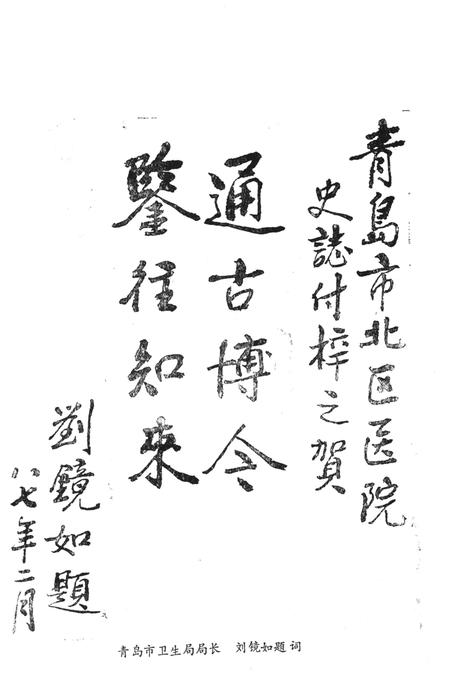 青島市北区医院
史誌付梓之賀
通古博今
鑒往知來
劉鏡如題
八七年二月
青岛市卫生局局长 刘镜如题词